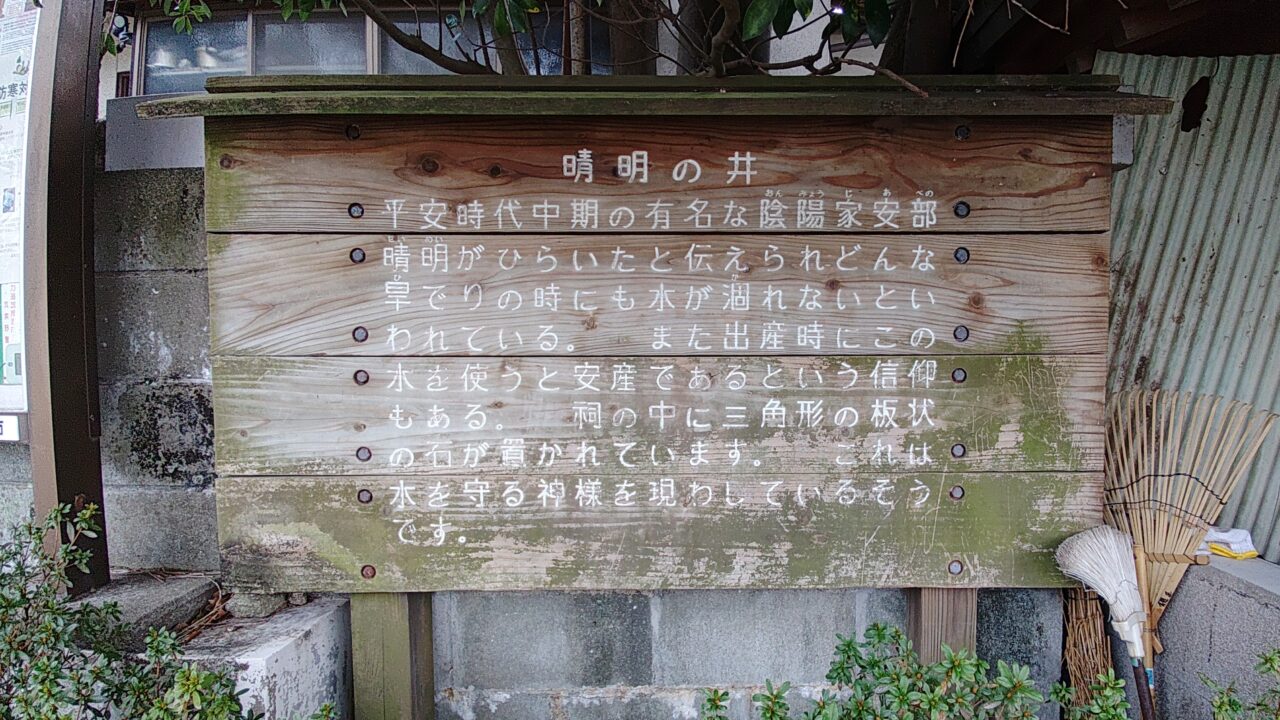 晴明の井
平安時代中期の有名な陰陽家安部
晴明がひらいたと伝えられどんな
旱でりの時にも水が涸れないとい
われている。 また出産時にこの
水を使うと安産であるという信仰
もある。 祠の中に三角形の板状
の石が置かれています。 これは
水を守る神様を現わしているそう
です。
防寒対